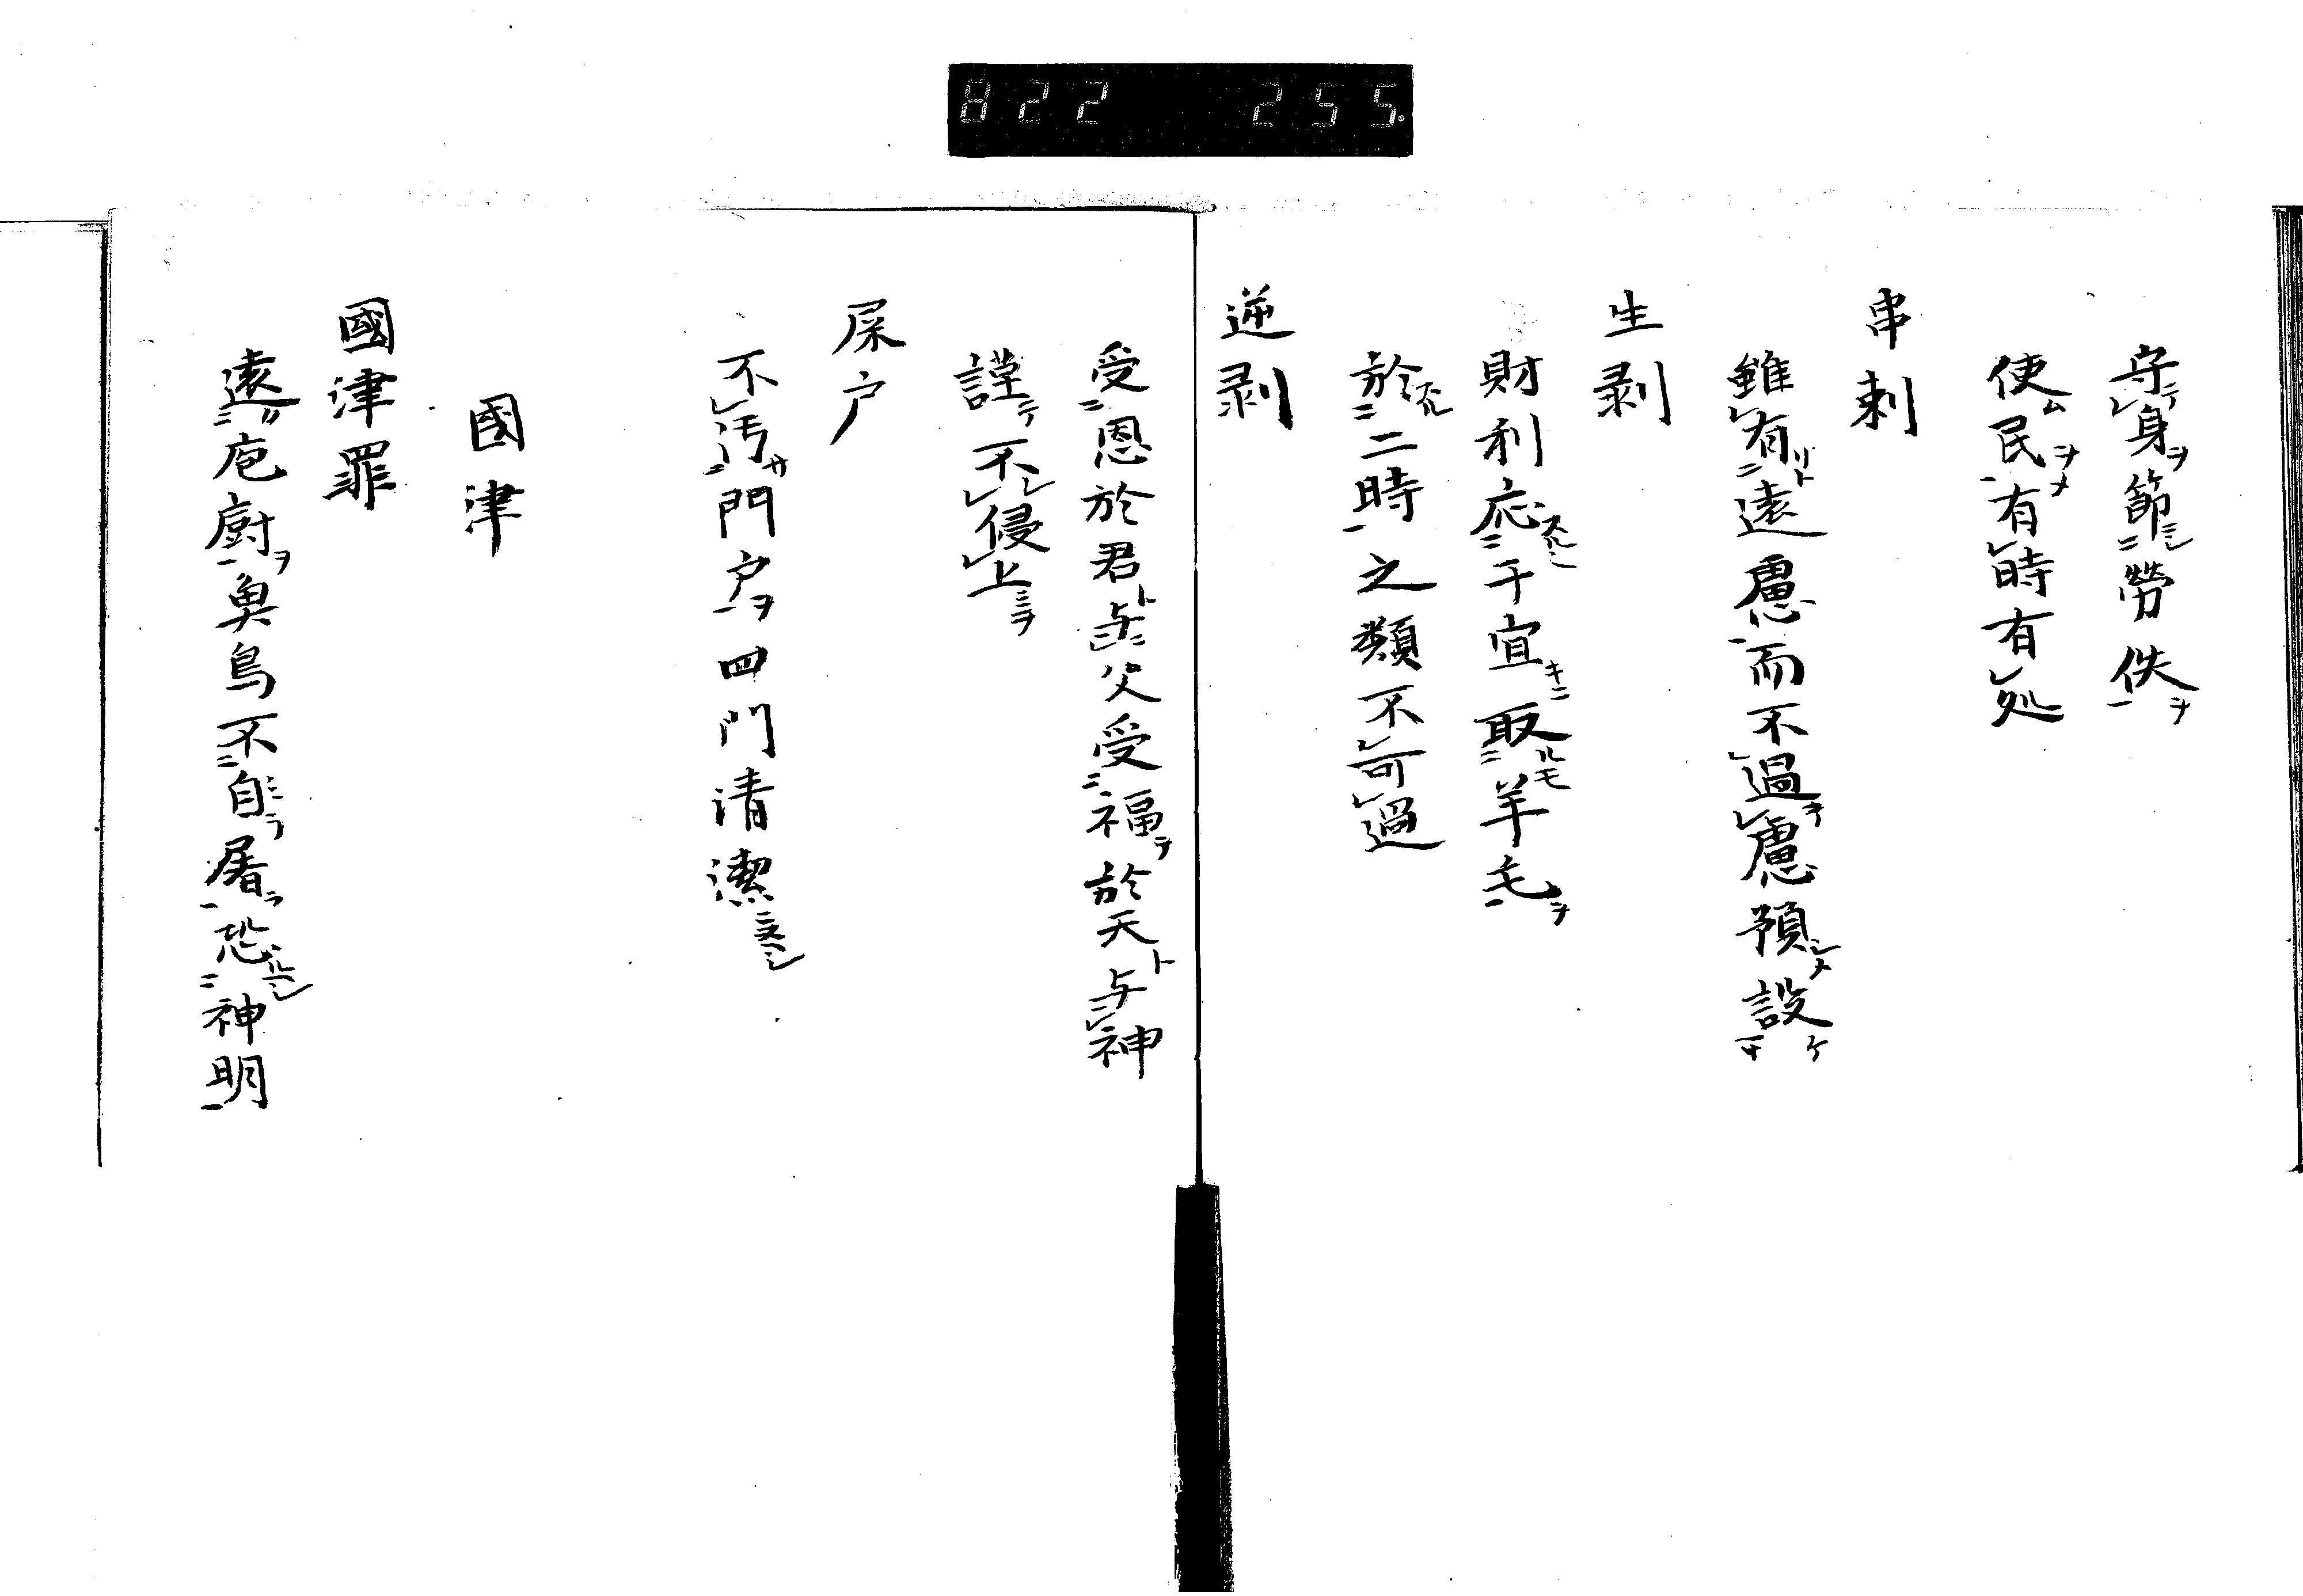 822 255.
守身節労佚
使民有時有処
串刺
雖有遠慮而不過慮預設
生剥
財利応于宜取羊毛
於二時之類不可過
逆剥
受恩於君与父受福於天与神
謹不侵上
屎户
不汚門户四門清潔
國津
國津罪
遠庖厨魚鳥不自屠恐神明